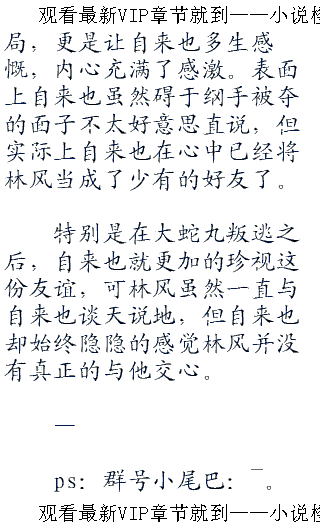 观看最新VIP章节就到——小说楼
局，更是让自来也多生感
慨，内心充满了感激。表面
上自来也虽然碍于纲手被夺
的面子不太好意思直说，但
实际上自来也在心中已经将
林风当成了少有的好友了。
特别是在大蛇丸叛逃之
后，自来也就更加的珍视这
份友谊，可林风虽然一直与
自来也谈天说地，但自来也
却始终隐隐的感觉林风并没
有真正的与他交心。
—
ps：群号小尾巴：¯。
观看最新VIP章节就到——小说